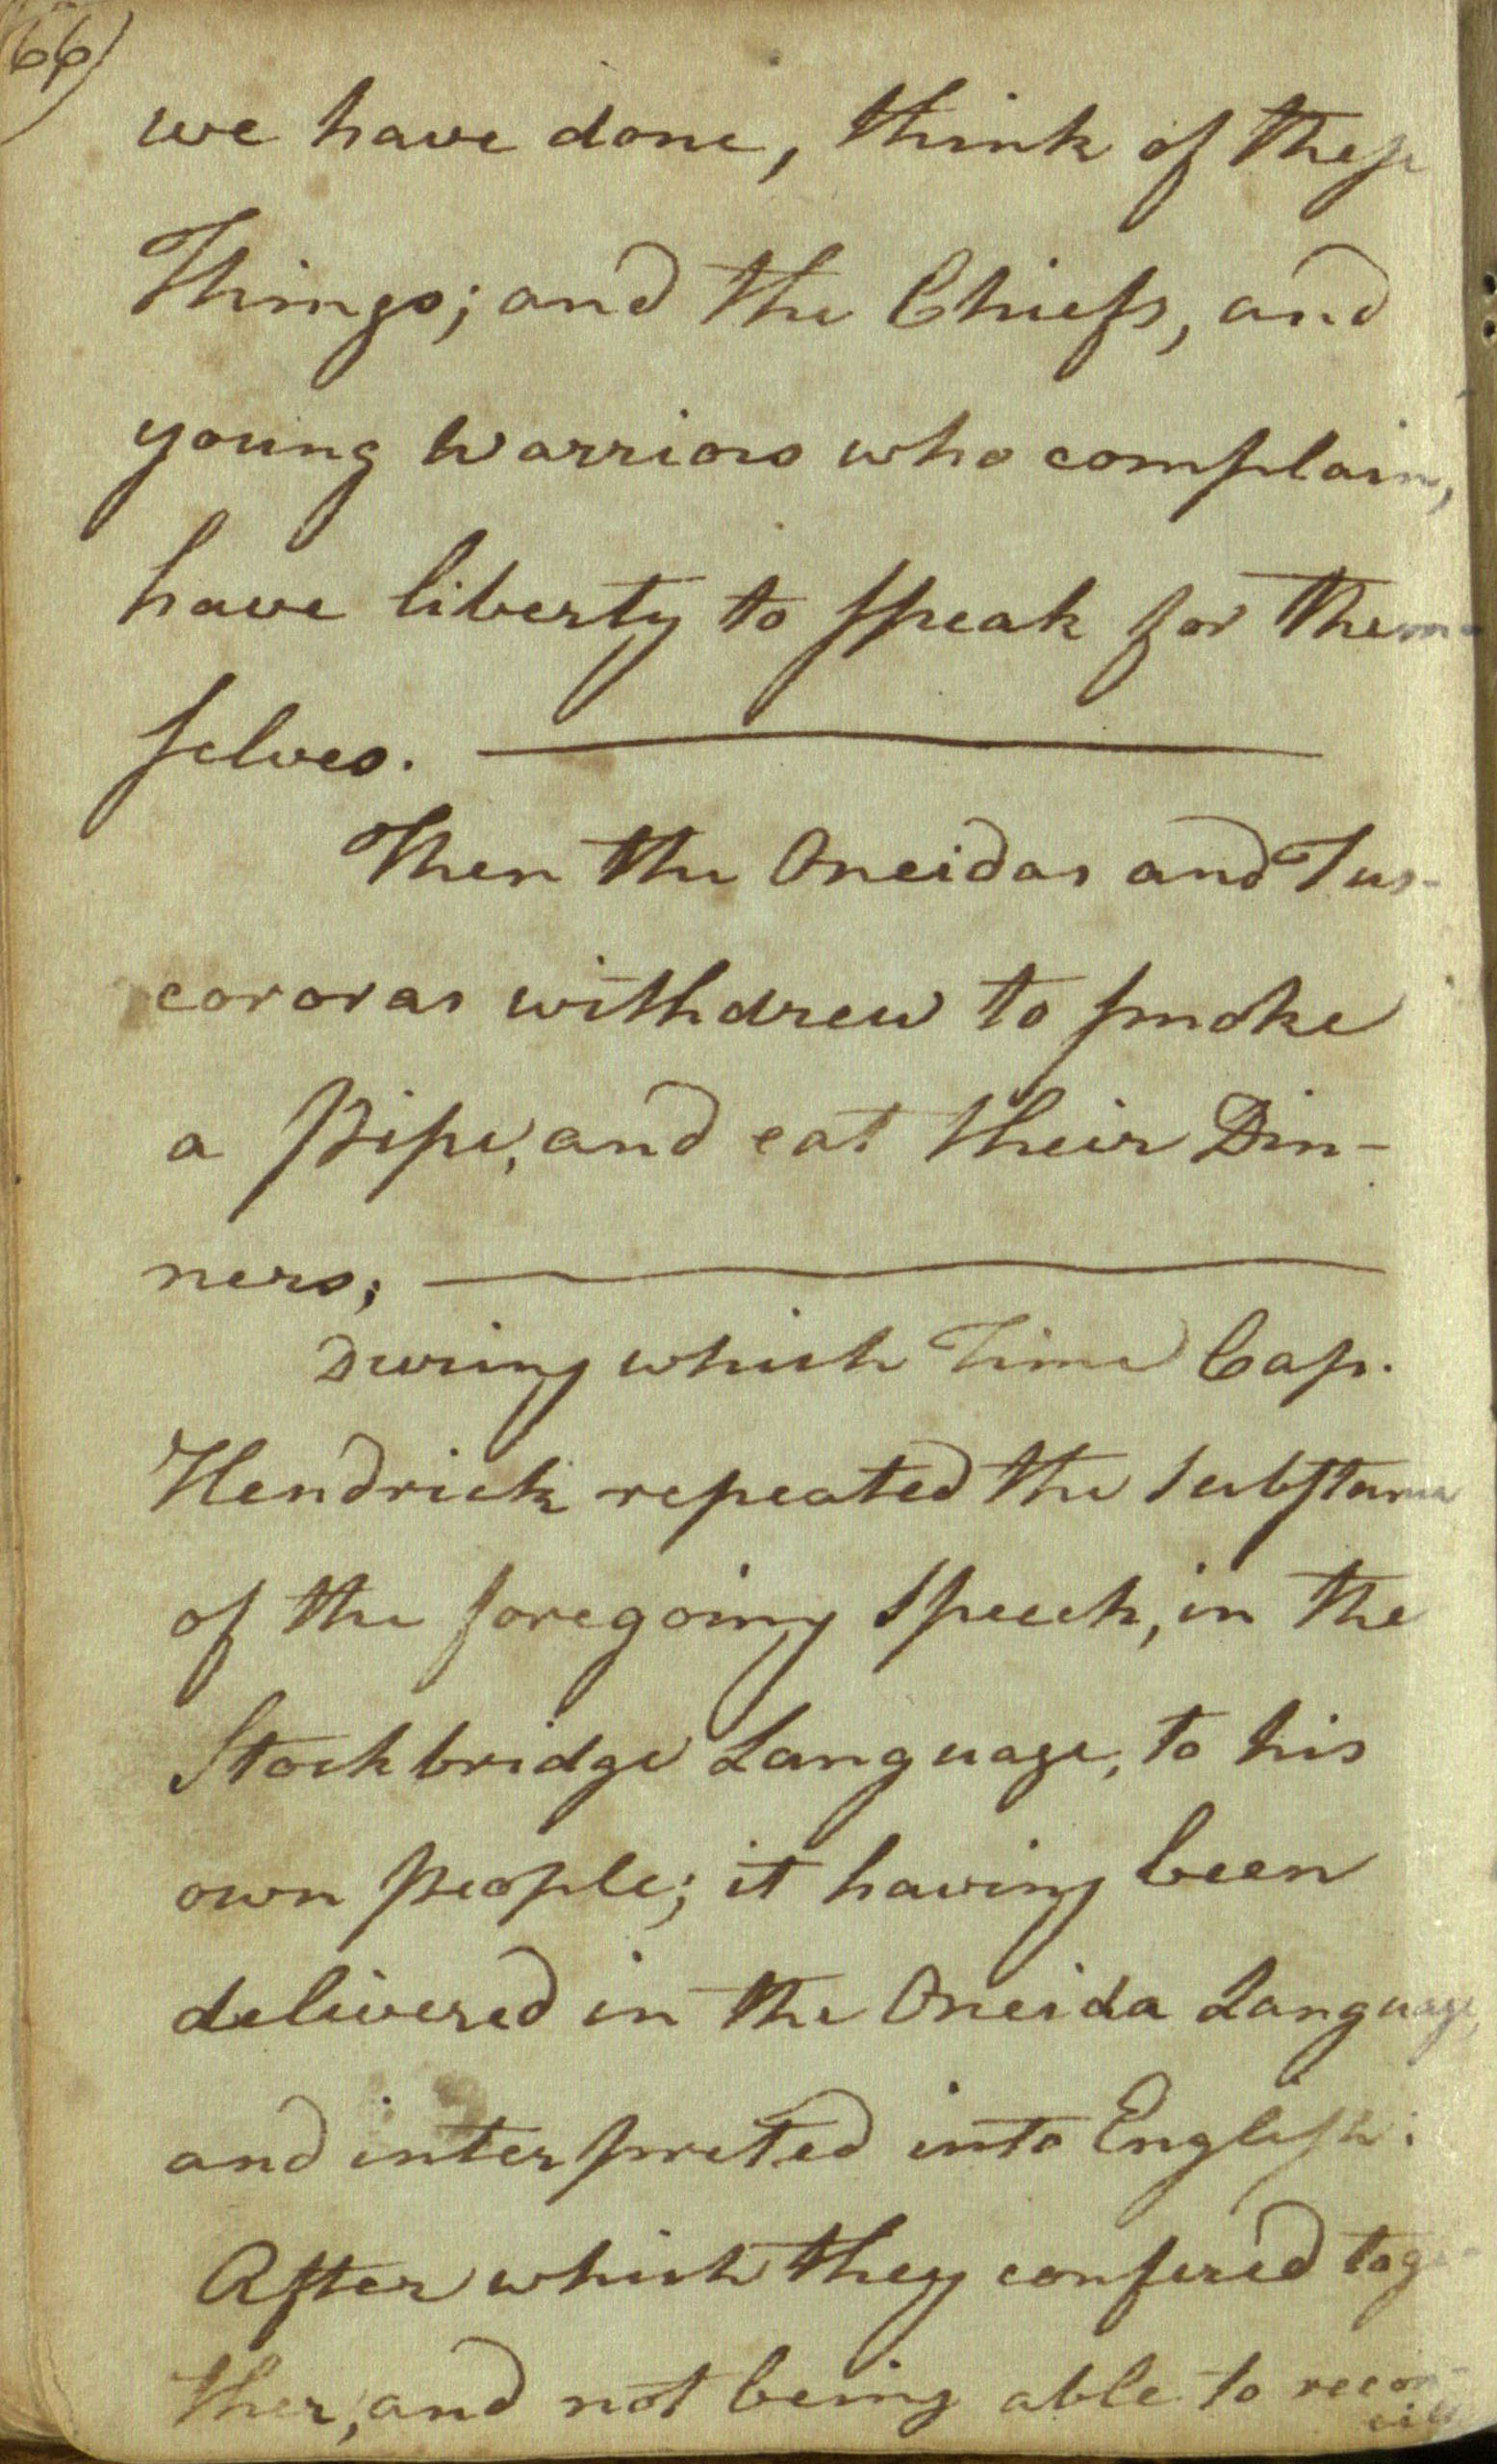 66)
we have done, think of these
Things; and the Chiefs, and
young Warriors who complain,
have liberty to speak for them-
selves.
Then the Oneidas and Tus-
cororas withdrew to smoke
a Pipe, and eat their Din-
ners;
During which Time Cap.
Hendrick repeated the Substance
of the foregoing Speech, in the
Stockbridge Language, to his
own People; it having been
delivered in the Oneida Language,
and interpreted into English:
After which they confered toge-
ther, and not being able to recon-
cile